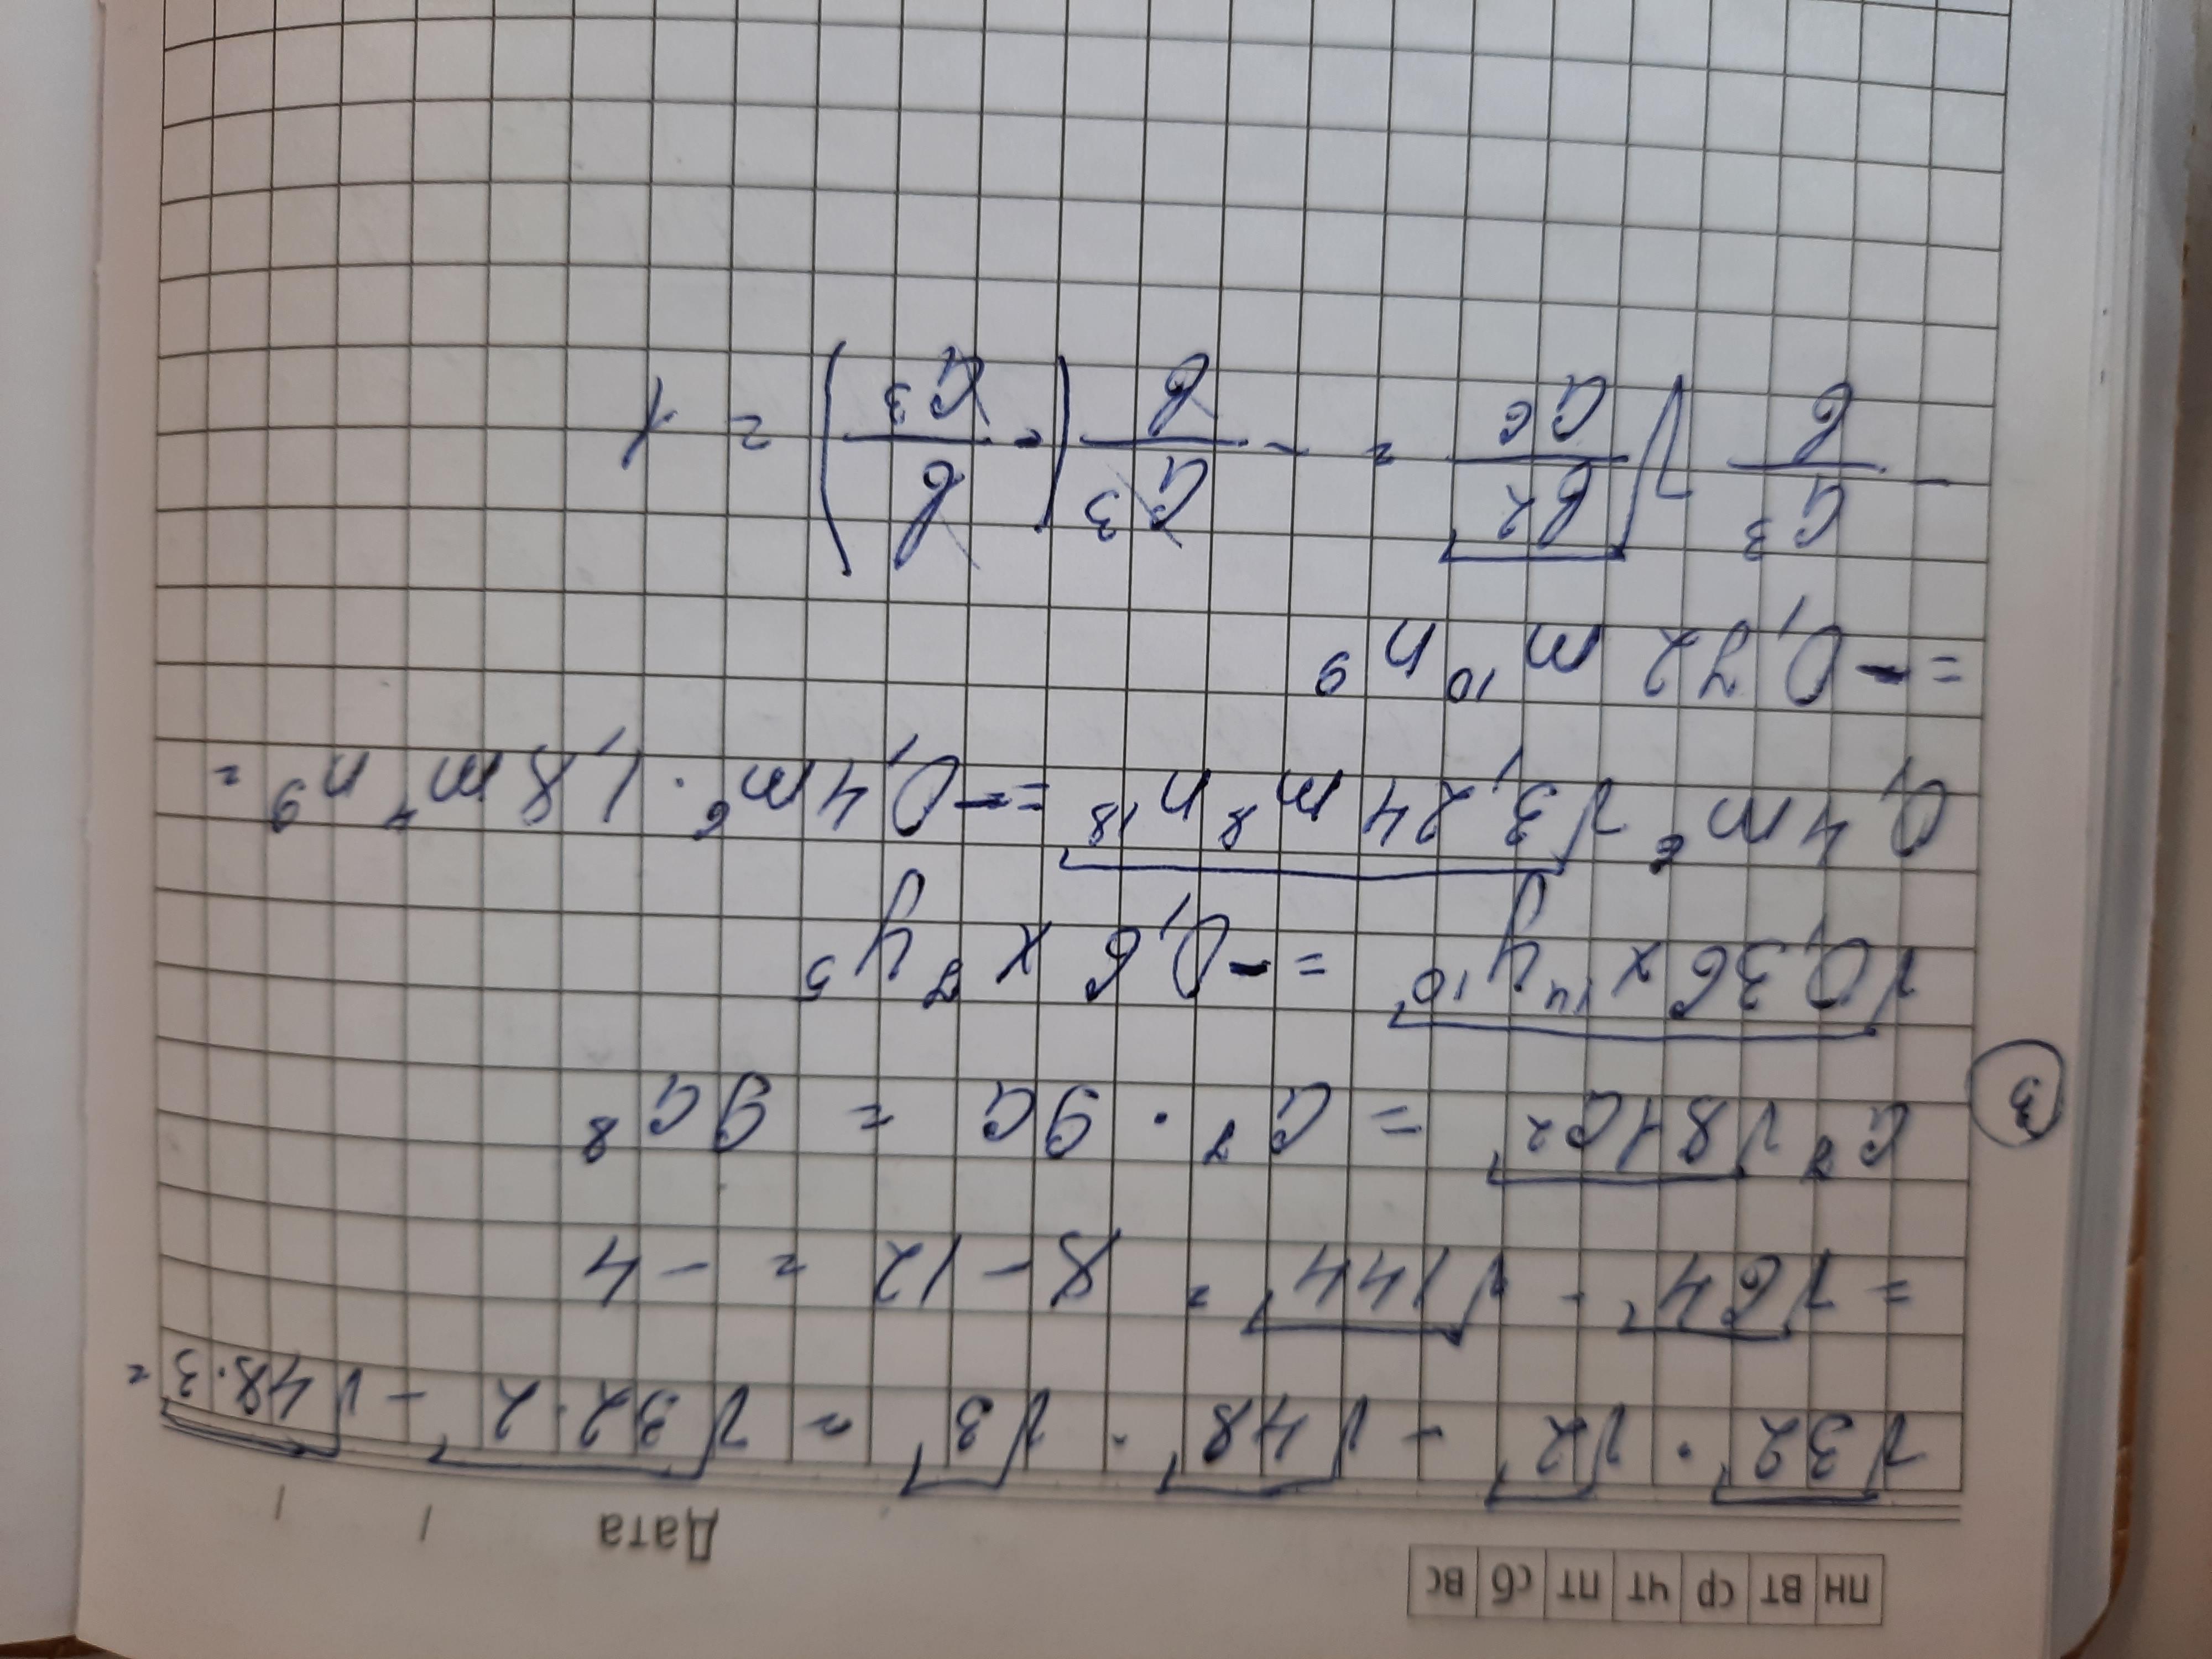 пн вт ср чт пт сб вс
Дата / /
√32 · √2 - √48 · √3 = √32·2 - √48·3 =
= √64 - √144 = 8 - 12 = -4
③ a⁷√81a² = a⁷ · 9a = 9a⁸
√0,36x¹⁴y¹⁰ = -0,6x⁷y⁵
0,4m⁶√3,24m⁸n¹⁸ = -0,4m⁶ · 1,8m⁴n⁹ =
= -0,72m¹⁰n⁹
- a³/b √b²/a⁶ = - a³/b (- b/a³) = 1